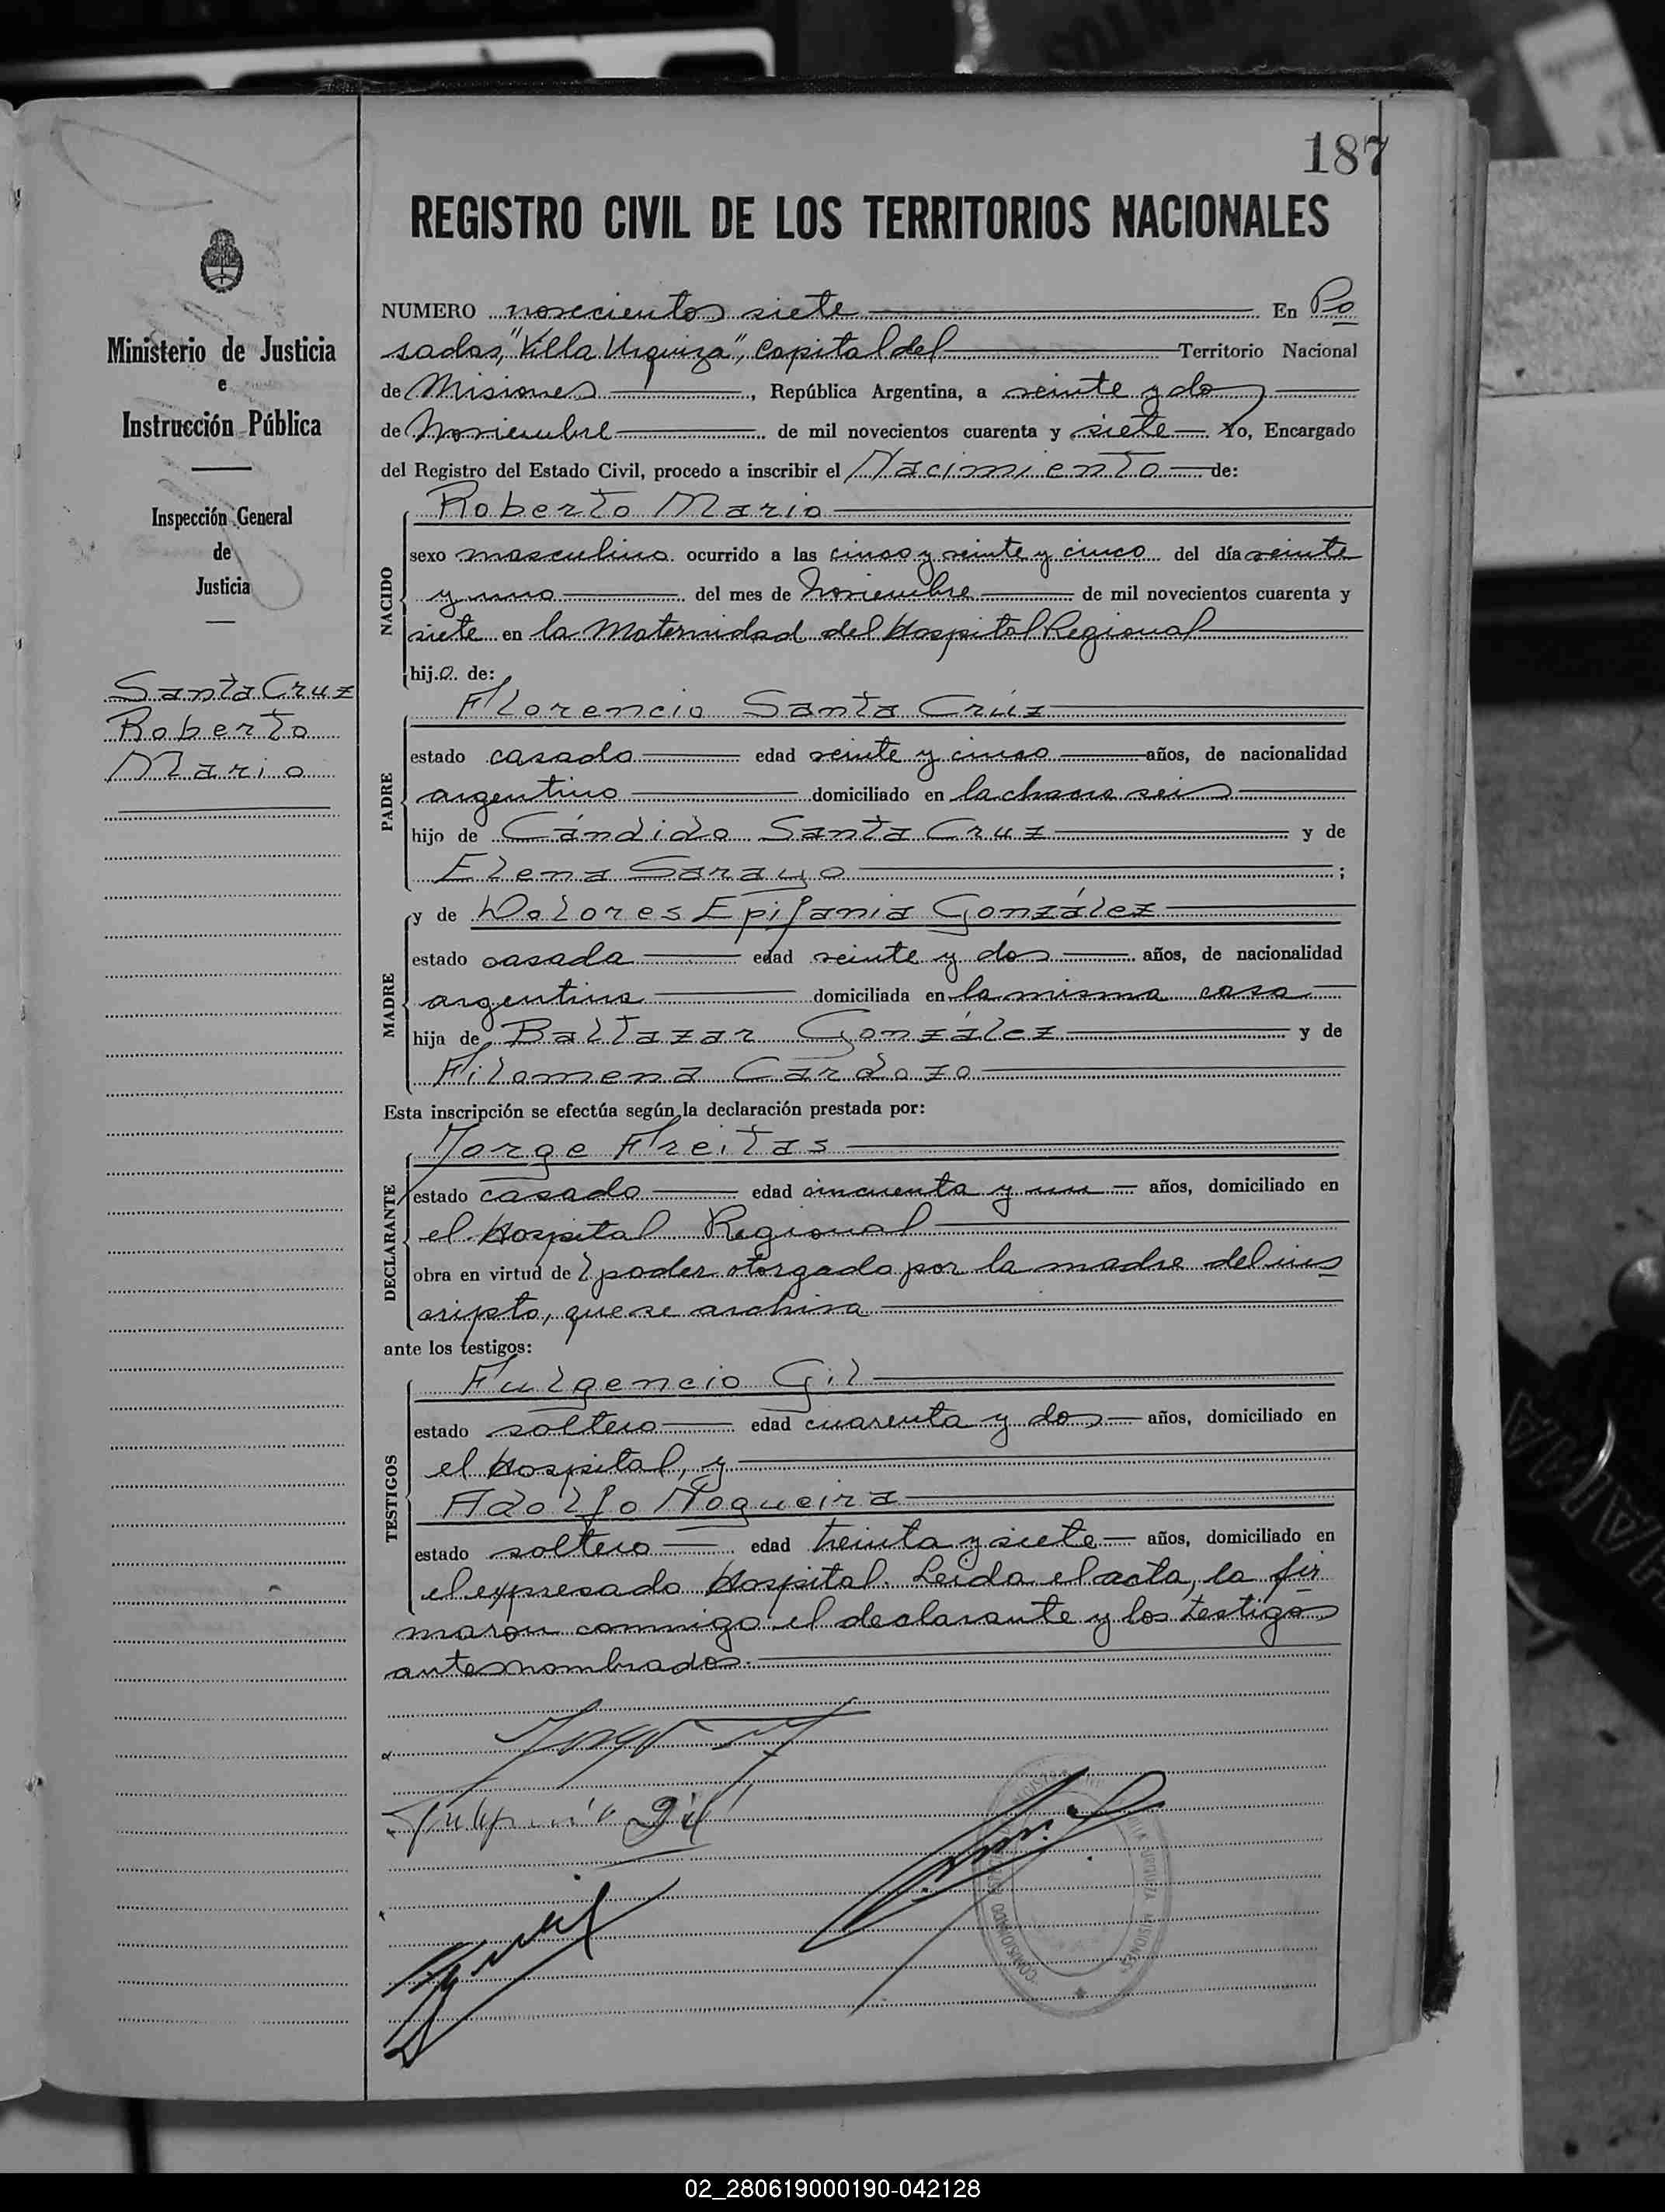 187
REGISTRO CIVIL DE LOS TERRITORIOS NACIONALES
Ministerio de Justicia
e
Instrucción Pública
Inspección General
de
Justicia
Santa Cruz
Roberto
Mario
NUMERO novecientos siete En Po
sadas, "Villa Urquiza", Capital del Territorio Nacional
de Misiones, República Argentina, a veinte y dos
de Noviembre de mil novecientos cuarenta y siete Yo, Encargado
del Registro del Estado Civil, procedo a inscribir el Nacimiento de:
NACIDO
Roberto Mario
sexo masculino ocurrido a las cinco y veinte y cinco del día veinte
y uno del mes de Noviembre de mil novecientos cuarenta y
siete en la Maternidad del Hospital Regional
hijo de:
PADRE
Florencio Santa Crúz
estado casado edad veinte y cinco años, de nacionalidad
argentino domiciliado en la chacra seis
hijo de Cándido Santa Cruz y de
Elena Sarayo ;
MADRE
y de Dolores Epifania González
estado casada edad veinte y dos años, de nacionalidad
argentina domiciliada en la misma casa
hija de Baltazar González y de
Filomena Cardozo
Esta inscripción se efectúa según la declaración prestada por:
DECLARANTE
Jorge Freitas
estado casado edad cincuenta y un años, domiciliado en
el Hospital Regional
obra en virtud de poder otorgado por la madre del ins
cripto, que se archiva
ante los testigos:
TESTIGOS
Fulgencio Gil
estado soltero edad cuarenta y dos años, domiciliado en
el Hospital, y
Adolfo Nogueira
estado soltero edad treinta y siete años, domiciliado en
el expresado Hospital. Leida el acta, la fir
maron conmigo el declarante y los testigos
antes nombrados.
02_280619000190-042128